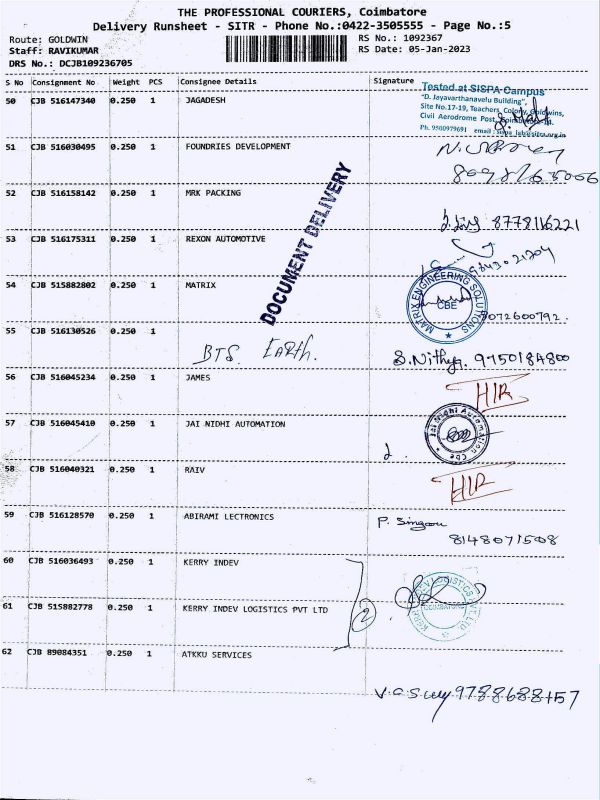 THE PROFESSIONAL COURIERS, Coimbatore
Delivery Runsheet - SITR - Phone No.:0422-3505555 - Page No.:5
Route: GOLDWIN
RS No.: 1092367
Staff: RAVIKUMAR
RS Date: 05-Jan-2023
DRS No.: DCJB109236705
S No Consignment No Weight PCS Consignee Details Signature
50 CJB 516147340 0.250 1 JAGADESH
Tested at SISPA Campus
"D. Jayavarthanavelu Building",
Site No.17-19, Teachers Colony, Goldwins,
Civil Aerodrome Post,
Ph. 9500979691 email :
51 CJB 516030495 0.250 1 FOUNDRIES DEVELOPMENT
52 CJB 516158142 0.250 1 MRK PACKING
8778116221
DOCUMENT DELIVERY
53 CJB 516175311 0.250 1 REXON AUTOMOTIVE
54 CJB 515882802 0.250 1 MATRIX
MATRIX ENGINEERING SOLUTIONS
CBE
9072600792.
55 CJB 516130526 0.250 1
BTS EARTH.
S.Nithya. 9750184800
56 CJB 516045234 0.250 1 JAMES
HIR
57 CJB 516045410 0.250 1 JAI NIDHI AUTOMATION
Jai Nidhi Automation Cbe
58 CJB 516040321 0.250 1 RAIV
HIR
59 CJB 516128570 0.250 1 ABIRAMI LECTRONICS
8148071508
60 CJB 516036493 0.250 1 KERRY INDEV
2
61 CJB 515882778 0.250 1 KERRY INDEV LOGISTICS PVT LTD
62 CJB 89084351 0.250 1 ATKKU SERVICES